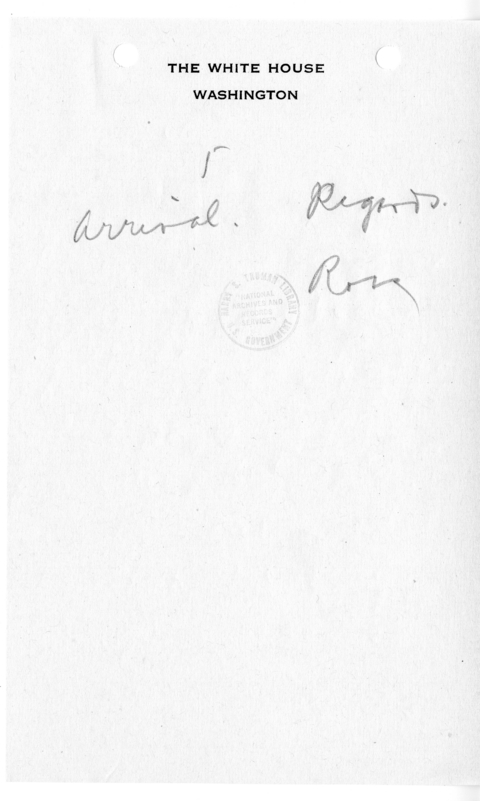 THE WHITE HOUSE
WASHINGTON
5
arrival. Regards.
Ross
HARRY S. TRUMAN LIBRARY
"NATIONAL
ARCHIVES AND
RECORDS
SERVICE"
U.S. GOVERNMENT